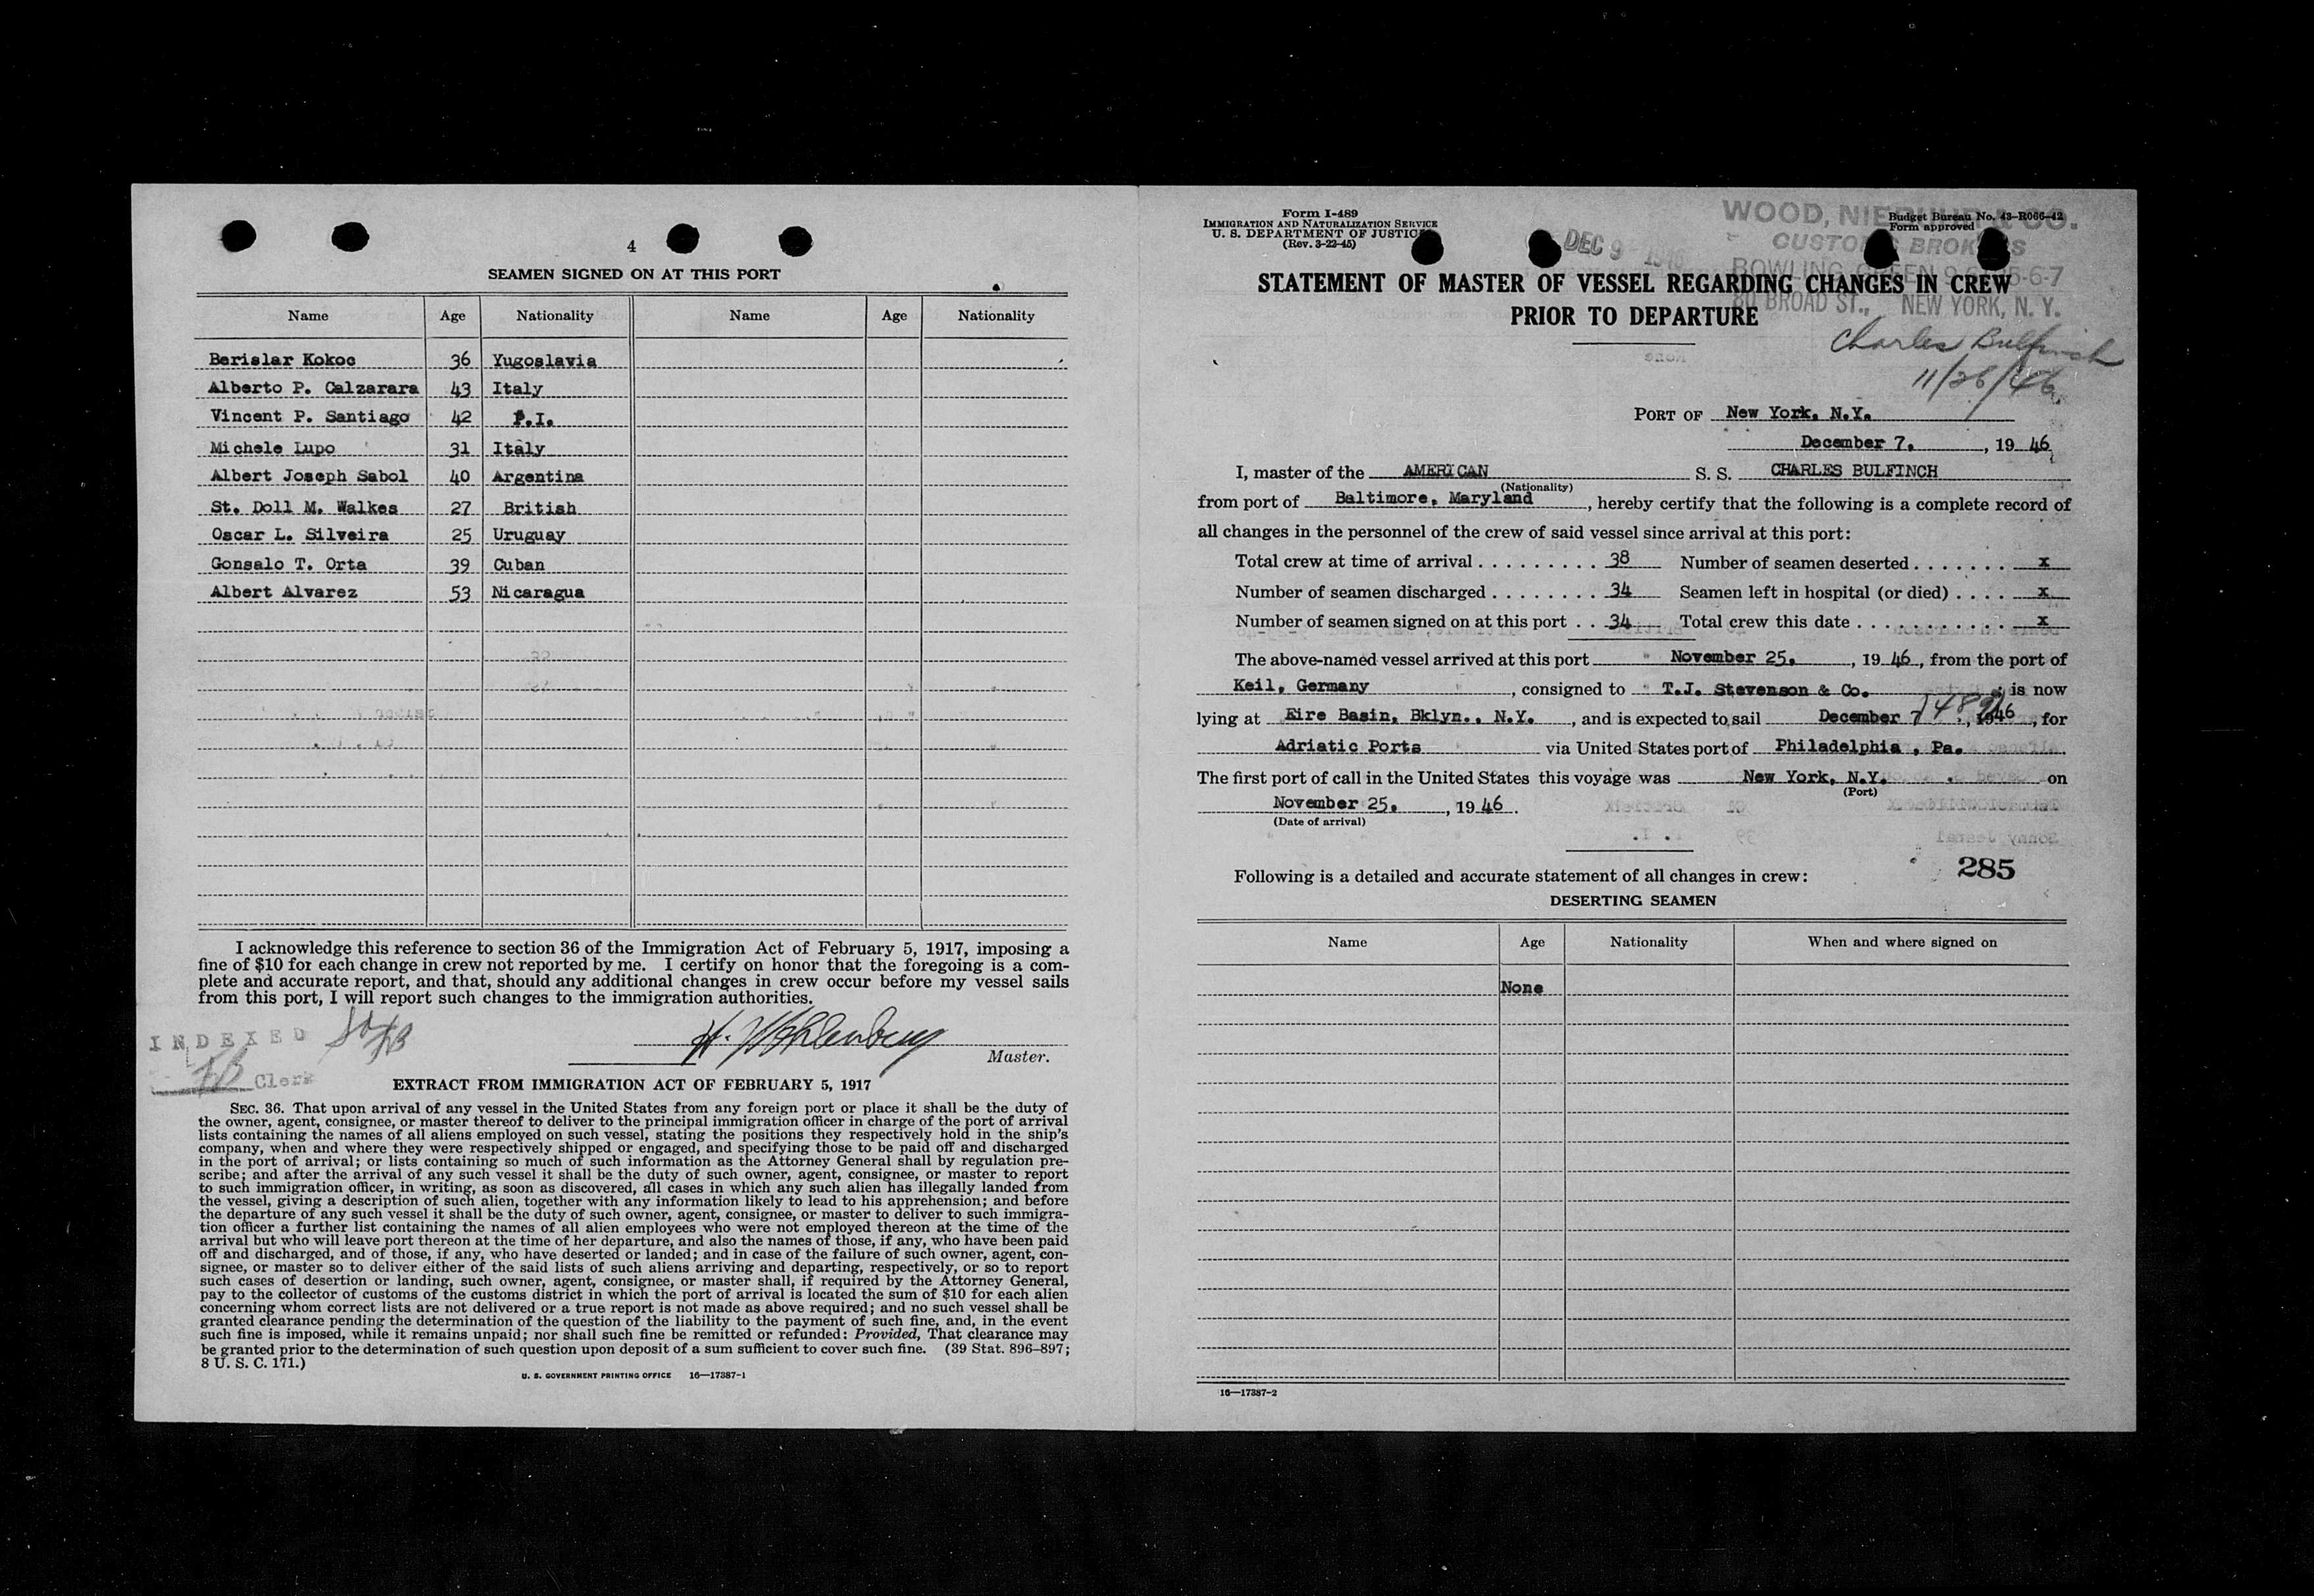 4
SEAMEN SIGNED ON AT THIS PORT
Name Age Nationality Name Age Nationality
Berislar Kokoc 36 Yugoslavia
Alberto P. Calzarara 43 Italy
Vincent P. Santiago 42 P.I.
Michele Lupo 31 Italy
Albert Joseph Sabol 40 Argentina
St. Doll M. Walkes 27 British
Oscar L. Silveira 25 Uruguay
Gonsalo T. Orta 39 Cuban
Albert Alvarez 53 Nicaragua
I acknowledge this reference to section 36 of the Immigration Act of February 5, 1917, imposing a
fine of $10 for each change in crew not reported by me. I certify on honor that the foregoing is a com-
plete and accurate report, and that, should any additional changes in crew occur before my vessel sails
from this port, I will report such changes to the immigration authorities.
INDEXED
Clerk
H. Wohlenberg
Master.
EXTRACT FROM IMMIGRATION ACT OF FEBRUARY 5, 1917
SEC. 36. That upon arrival of any vessel in the United States from any foreign port or place it shall be the duty of
the owner, agent, consignee, or master thereof to deliver to the principal immigration officer in charge of the port of arrival
lists containing the names of all aliens employed on such vessel, stating the positions they respectively hold in the ship's
company, when and where they were respectively shipped or engaged, and specifying those to be paid off and discharged
in the port of arrival; or lists containing so much of such information as the Attorney General shall by regulation pre-
scribe; and after the arrival of any such vessel it shall be the duty of such owner, agent, consignee, or master to report
to such immigration officer, in writing, as soon as discovered, all cases in which any such alien has illegally landed from
the vessel, giving a description of such alien, together with any information likely to lead to his apprehension; and before
the departure of any such vessel it shall be the duty of such owner, agent, consignee, or master to deliver to such immigra-
tion officer a further list containing the names of all alien employees who were not employed thereon at the time of the
arrival but who will leave port thereon at the time of her departure, and also the names of those, if any, who have been paid
off and discharged, and of those, if any, who have deserted or landed; and in case of the failure of such owner, agent, con-
signee, or master so to deliver either of the said lists of such aliens arriving and departing, respectively, or so to report
such cases of desertion or landing, such owner, agent, consignee, or master shall, if required by the Attorney General,
pay to the collector of customs of the customs district in which the port of arrival is located the sum of $10 for each alien
concerning whom correct lists are not delivered or a true report is not made as above required; and no such vessel shall be
granted clearance pending the determination of the question of the liability to the payment of such fine, and, in the event
such fine is imposed, while it remains unpaid; nor shall such fine be remitted or refunded: Provided, That clearance may
be granted prior to the determination of such question upon deposit of a sum sufficient to cover such fine. (39 Stat. 896–897;
8 U. S. C. 171.)
U. S. GOVERNMENT PRINTING OFFICE 16—17387-1
Form I-489
IMMIGRATION AND NATURALIZATION SERVICE
U. S. DEPARTMENT OF JUSTICE
(Rev. 3-22-45)
DEC 9 1946
Budget Bureau No. 43-R066-42
Form approved
WOOD, & CO.
CUSTOMS BROKERS
BOWLING GREEN
80 BROAD ST., NEW YORK, N. Y.
STATEMENT OF MASTER OF VESSEL REGARDING CHANGES IN CREW
PRIOR TO DEPARTURE
Charles Bulfinch
11/26/46
PORT OF New York, N.Y.
December 7, , 19 46
I, master of the AMERICAN S. S. CHARLES BULFINCH
(Nationality)
from port of Baltimore, Maryland , hereby certify that the following is a complete record of
all changes in the personnel of the crew of said vessel since arrival at this port:
Total crew at time of arrival . . . . . . . . . 38 Number of seamen deserted . . . . . . . x
Number of seamen discharged . . . . . . . . 34 Seamen left in hospital (or died) . . . . x
Number of seamen signed on at this port . . 34 Total crew this date . . . . . . . . . . . x
The above-named vessel arrived at this port November 25, , 19 46 , from the port of
Keil, Germany , consigned to T.J. Stevenson & Co. ; is now
lying at Eire Basin, Bklyn., N.Y. , and is expected to sail December 7 , 1946 , for
Adriatic Ports via United States port of Philadelphia , Pa.
The first port of call in the United States this voyage was New York, N.Y. on
(Port)
November 25, , 19 46 .
(Date of arrival)
285
Following is a detailed and accurate statement of all changes in crew:
DESERTING SEAMEN
Name Age Nationality When and where signed on
None
16—17387-2